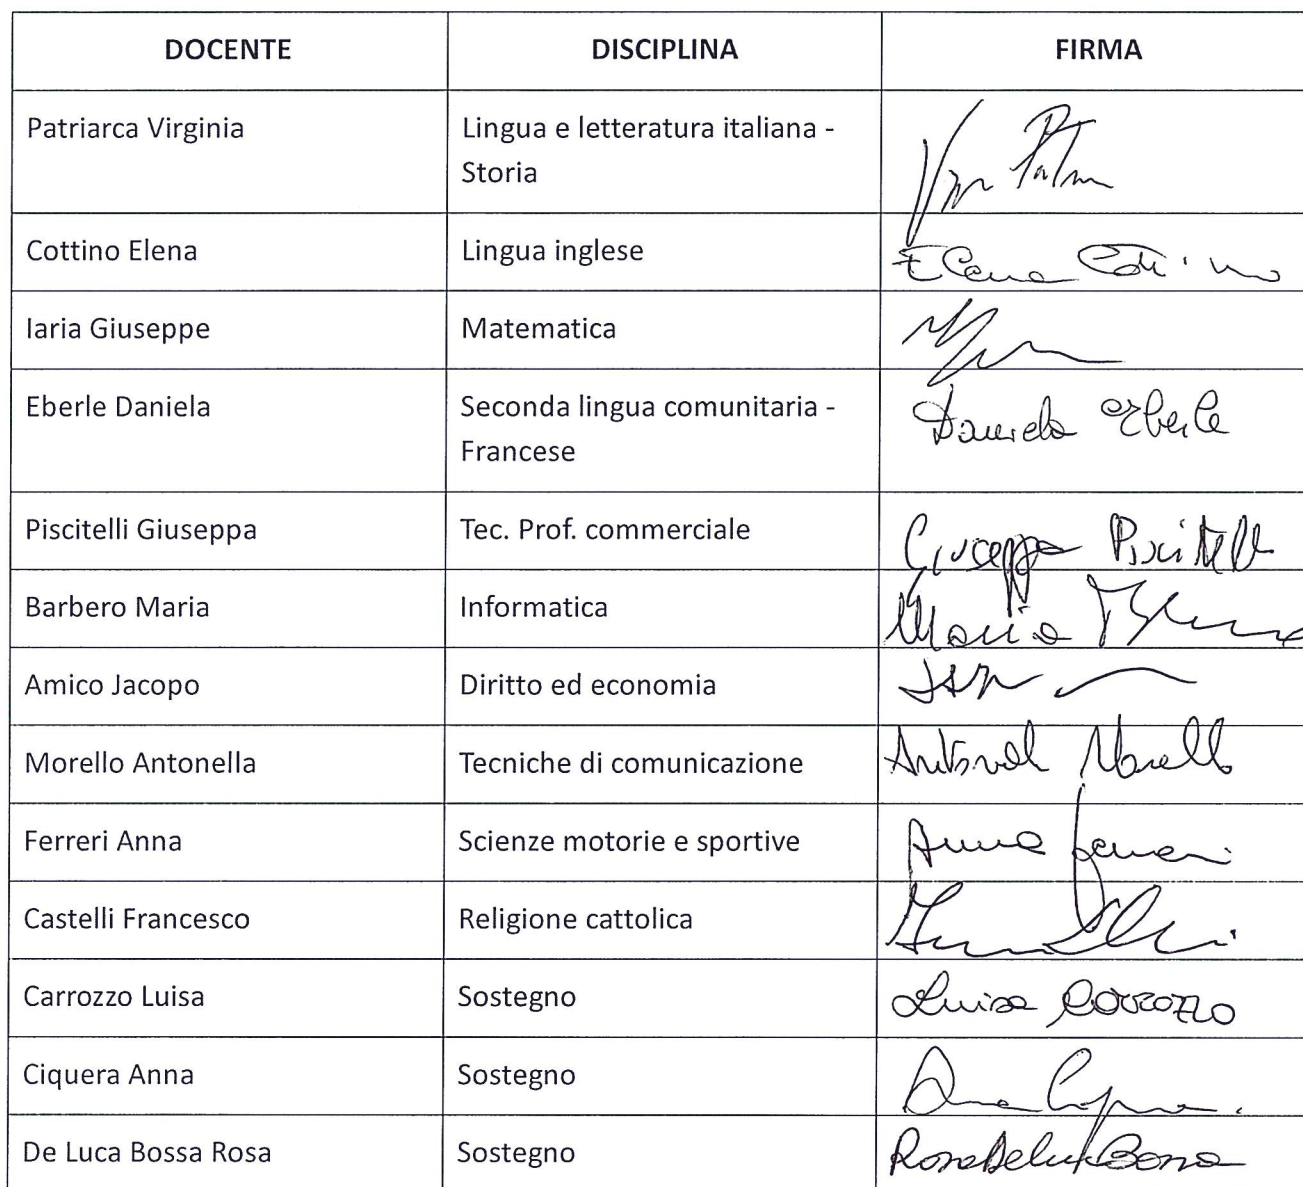 DOCENTE DISCIPLINA FIRMA
Patriarca Virginia Lingua e letteratura italiana -
Storia
Cottino Elena Lingua inglese Elena Cottino
Iaria Giuseppe Matematica
Eberle Daniela Seconda lingua comunitaria - Daniela Eberle
Francese
Piscitelli Giuseppa Tec. Prof. commerciale Giuseppa Piscitelli
Barbero Maria Informatica Maria
Amico Jacopo Diritto ed economia
Morello Antonella Tecniche di comunicazione Antonella Morello
Ferreri Anna Scienze motorie e sportive Anna Ferreri
Castelli Francesco Religione cattolica
Carrozzo Luisa Sostegno Luisa Carrozzo
Ciquera Anna Sostegno Anna
De Luca Bossa Rosa Sostegno Rosa De Luca Bossa